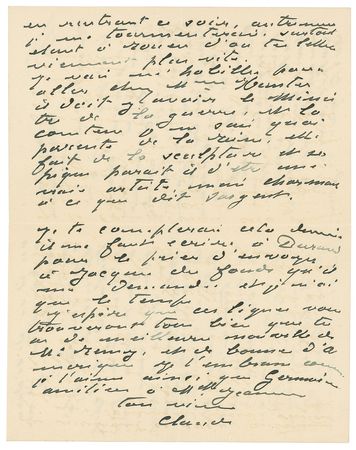 en rentrant ce soir, autrement
je me tourmenterais, surtout
étant à Rouen d'où tes lettres
viennent plus vite.
Je vais m'habiller pour
aller chez Mme Hunter
il doit y avoir le Minis
tre de la guerre, et la
comtesse je ne sais quoi
parente de la reine, et
fait de la sculpture et se
pique paraît-il d'être une
vraie artiste, mais charmante
à ce que dit Sargent.
je te complèterai cela demain
il me faut écrire à Durand
pour le prier d'envoyer
à Jacques de fonds qu'il
me demande et je n'ai
que le temps
J'espère que ces lignes vous
trouveront tous bien que tu
as de meilleures nouvelles de
et de bonnes d'A
mérique je t'embrasse comme
je t'aime ainsi que Germaine
amitiés à
ton vieux
Claude